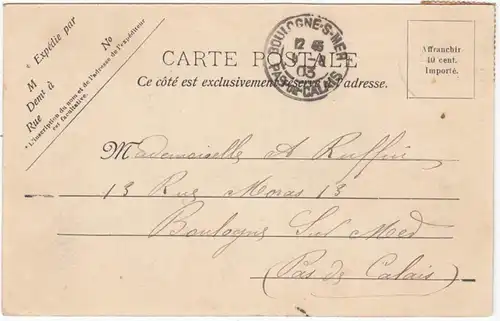 * Expédié par
M
Demt à
Rue
No
* L'inscription du nom et de l'adresse de l'expéditeur
est facultative.
CARTE POSTALE
Ce côté est exclusivement réservé à l'adresse.
BOULOGNE-S-MER
12 45
03
PAS-DE-CALAIS
Affranchir
10 cent.
Importé.
Mademoiselle A Ruffin
13 Rue Moras 13
Boulogne Sur Mer
(Pas de Calais)